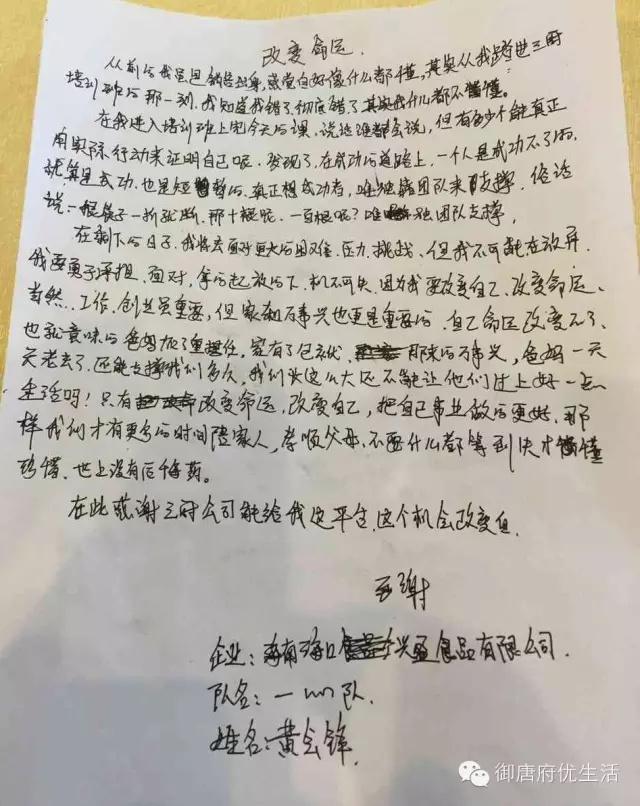 改变命运.
从前的我虽是销售出身,感觉自好像什么都懂,其实从我踏进三时
培训班的那一刻.我知道我错了.彻底错了.其实我什么都不懂.
在我进入培训班上完今天的课、说远谁都会说,但有多少个能真正
用实际行动来证明自己呢.发现了.在成功的道路上.一个人是成功不了的.
就算是成功.也是短暂的.真正想成功者,唯独靠团队来支撑.俗话
说:一根筷子一折就断.那十根呢.一百根呢?唯独团队支撑,
在剩下的日子.我将去面对更大的困难.压力.挑战、但我不可能在放弃.
我要勇于承担.面对,拿的起放的下.机不可失.因为我要改变自己、改变命运、
当然...工作.创业虽重要,但家和万事兴也更是重要的.自己命运改变不了、
也就意味的爸妈加了重担任,家有了包袱、那来的万事兴,爸妈一天
天老去了.还能支撑我们多久,我们头这么大还不能让他们过上好一点
生活吗!只有改变命运,改变自己,把自己事业做的更好.那
样我们才有更多的时间陪家人,孝顺父母、不要什么都等到失才懂
珍惜.世上没有后悔药。
在此感谢三时公司能给我这平台.这个机会改变自.
谢
企业:海南海口兴盈食品有限公司.
队名:一队.
姓名:黄会锋.
御唐府优生活